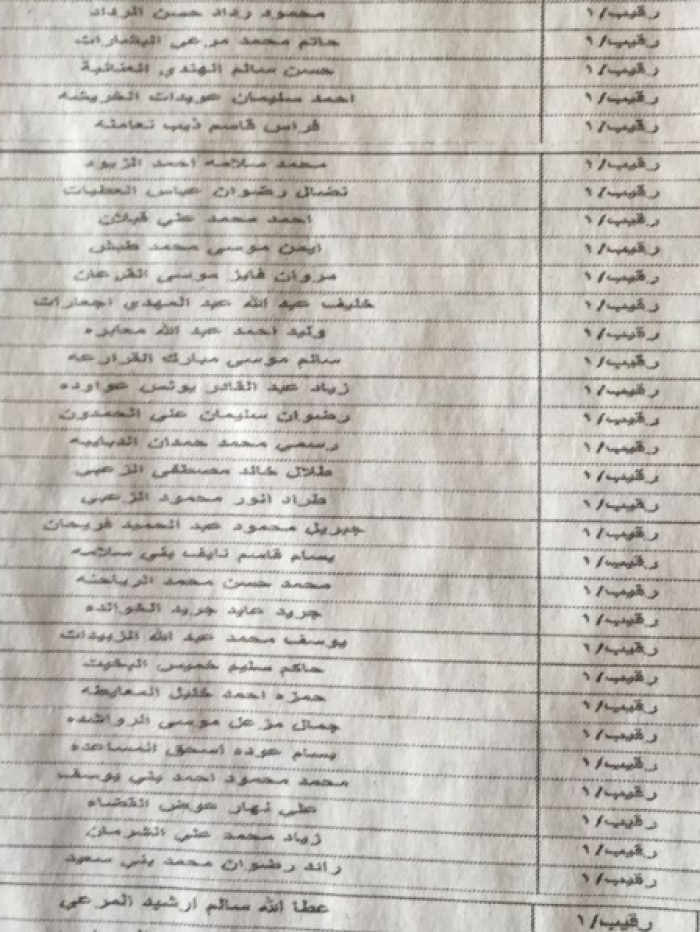 رقيب/١ محمود رداد حسن الرداد
رقيب/١ حاتم محمد مرعي البشارات
رقيب/١ حسن سالم الهندي العنانبة
رقيب/١ احمد سليمان عويدات الخريشه
رقيب/١ فراس قاسم ذيب نعامنه
رقيب/١ محمد سلامه احمد الزيود
رقيب/١ نضال رضوان عباس العطيات
رقيب/١ احمد محمد علي قبلان
رقيب/١ ايمن موسى محمد
رقيب/١ مروان فايز موسى القرعان
رقيب/١ خليف عبد الله عبد المهدي اجعارات
رقيب/١ وليد احمد عبد الله معابره
رقيب/١ سالم موسى مبارك القرارعه
رقيب/١ زياد عبد القادر يونس عواوده
رقيب/١ رضوان سليمان علي الحمدون
رقيب/١ رسمي محمد حمدان الدبايبه
رقيب/١ طلال خالد مصطفى الزعبي
رقيب/١ طراد انور محمود الزعبي
رقيب/١ جبريل محمود عبد الحميد فريحان
رقيب/١ بسام قاسم نايف بني سلامه
رقيب/١ محمد حسن محمد الرياحنه
رقيب/١ جريد عايد جريد الخوالده
رقيب/١ يوسف محمد عبد الله الزبيدات
رقيب/١ حاكم سليم خميس البخيت
رقيب/١ حمزه احمد خليل المعايطه
رقيب/١ جمال مزعل موسى الرواشده
رقيب/١ بسام عوده اسحق المساعده
رقيب/١ محمد محمود احمد بني يوسف
رقيب/١ علي نهار عوض القضاه
رقيب/١ زياد محمد علي الشرمان
رقيب/١ رائد رضوان محمد بني سعيد
رقيب/١ عطا الله سالم ارشيد المرعي